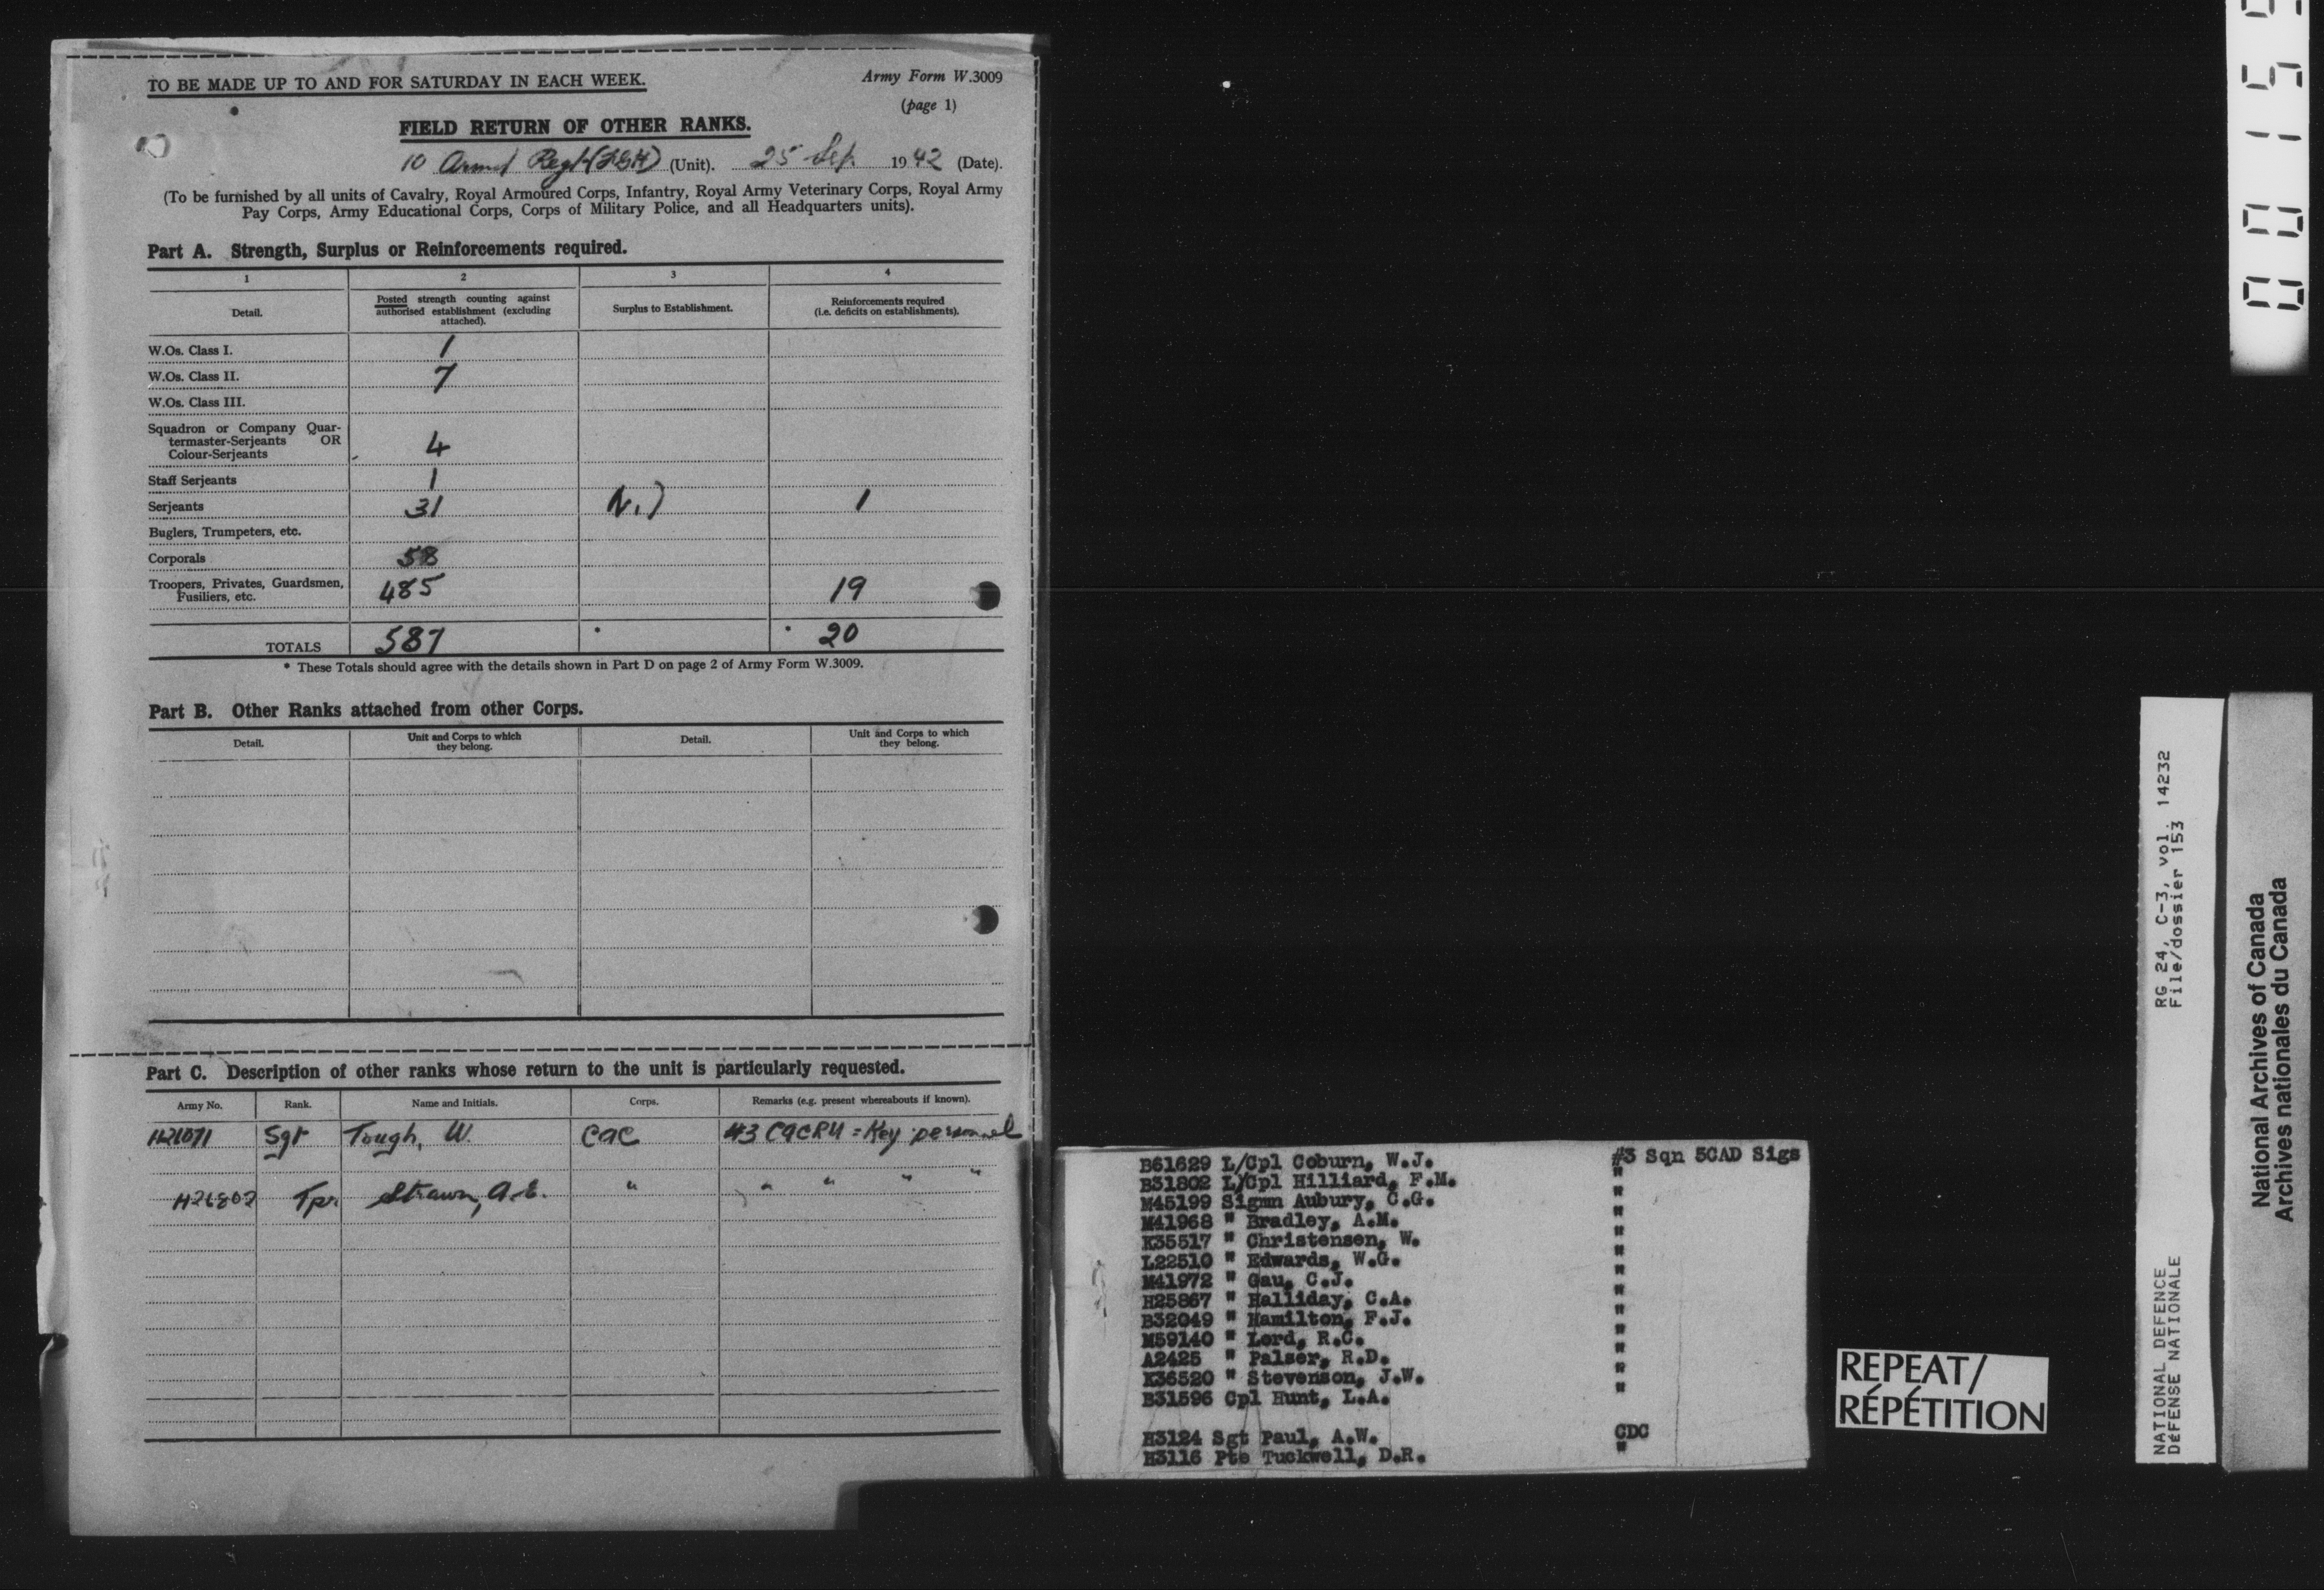 TO BE MADE UP TO AND FOR SATURDAY IN EACH WEEK.
Army Form W.3009
(page 1)
FIELD RETURN OF OTHER RANKS.
10 Armd Regt (FGH) (Unit). 25 Sep 1942 (Date).
(To be furnished by all units of Cavalry, Royal Armoured Corps, Infantry, Royal Army Veterinary Corps, Royal Army
Pay Corps, Army Educational Corps, Corps of Military Police, and all Headquarters units).
Part A. Strength, Surplus or Reinforcements required.
1 2 3 4
Detail. Posted strength counting against authorised establishment (excluding attached). Surplus to Establishment. Reinforcements required (i.e. deficits on establishments).
W.Os. Class I. 1
W.Os. Class II. 7
W.Os. Class III.
Squadron or Company Quar-
termaster-Serjeants OR
Colour-Serjeants 4
Staff Serjeants 1
Serjeants 31 Nil 1
Buglers, Trumpeters, etc.
Corporals 58
Troopers, Privates, Guardsmen,
Fusiliers, etc. 485 19
TOTALS 587 20
* These Totals should agree with the details shown in Part D on page 2 of Army Form W.3009.
Part B. Other Ranks attached from other Corps.
Detail. Unit and Corps to which they belong. Detail. Unit and Corps to which they belong.
Part C. Description of other ranks whose return to the unit is particularly requested.
Army No. Rank. Name and Initials. Corps. Remarks (e.g. present whereabouts if known).
H26071 Sgt Tough, W. CAC #3 CACRU = Key personnel
H26802 Tpr Strawn, A.E. " " " " "
B61629 L/Cpl Coburn, W.J. #3 Sqn 5CAD Sigs
B31802 L/Cpl Hilliard, F.M. "
M45199 Sigmn Aubury, C.G. "
M41968 " Bradley, A.M. "
K35517 " Christensen, W. "
L22510 " Edwards, W.G. "
M41972 " Gau, C.J. "
H25867 " Halliday, C.A. "
B32049 " Hamilton, F.J. "
M59140 " Lord, R.C. "
A2425 " Palser, R.D. "
K36520 " Stevenson, J.W. "
B31596 Cpl Hunt, L.A. "
H3124 Sgt Paul, A.W. CDC
H3116 Pte Tuckwell, D.R. "
REPEAT/
RÉPÉTITION
RG 24, C-3, vol. 14232
File/dossier 153
NATIONAL DEFENCE
DÉFENSE NATIONALE
National Archives of Canada
Archives nationales du Canada